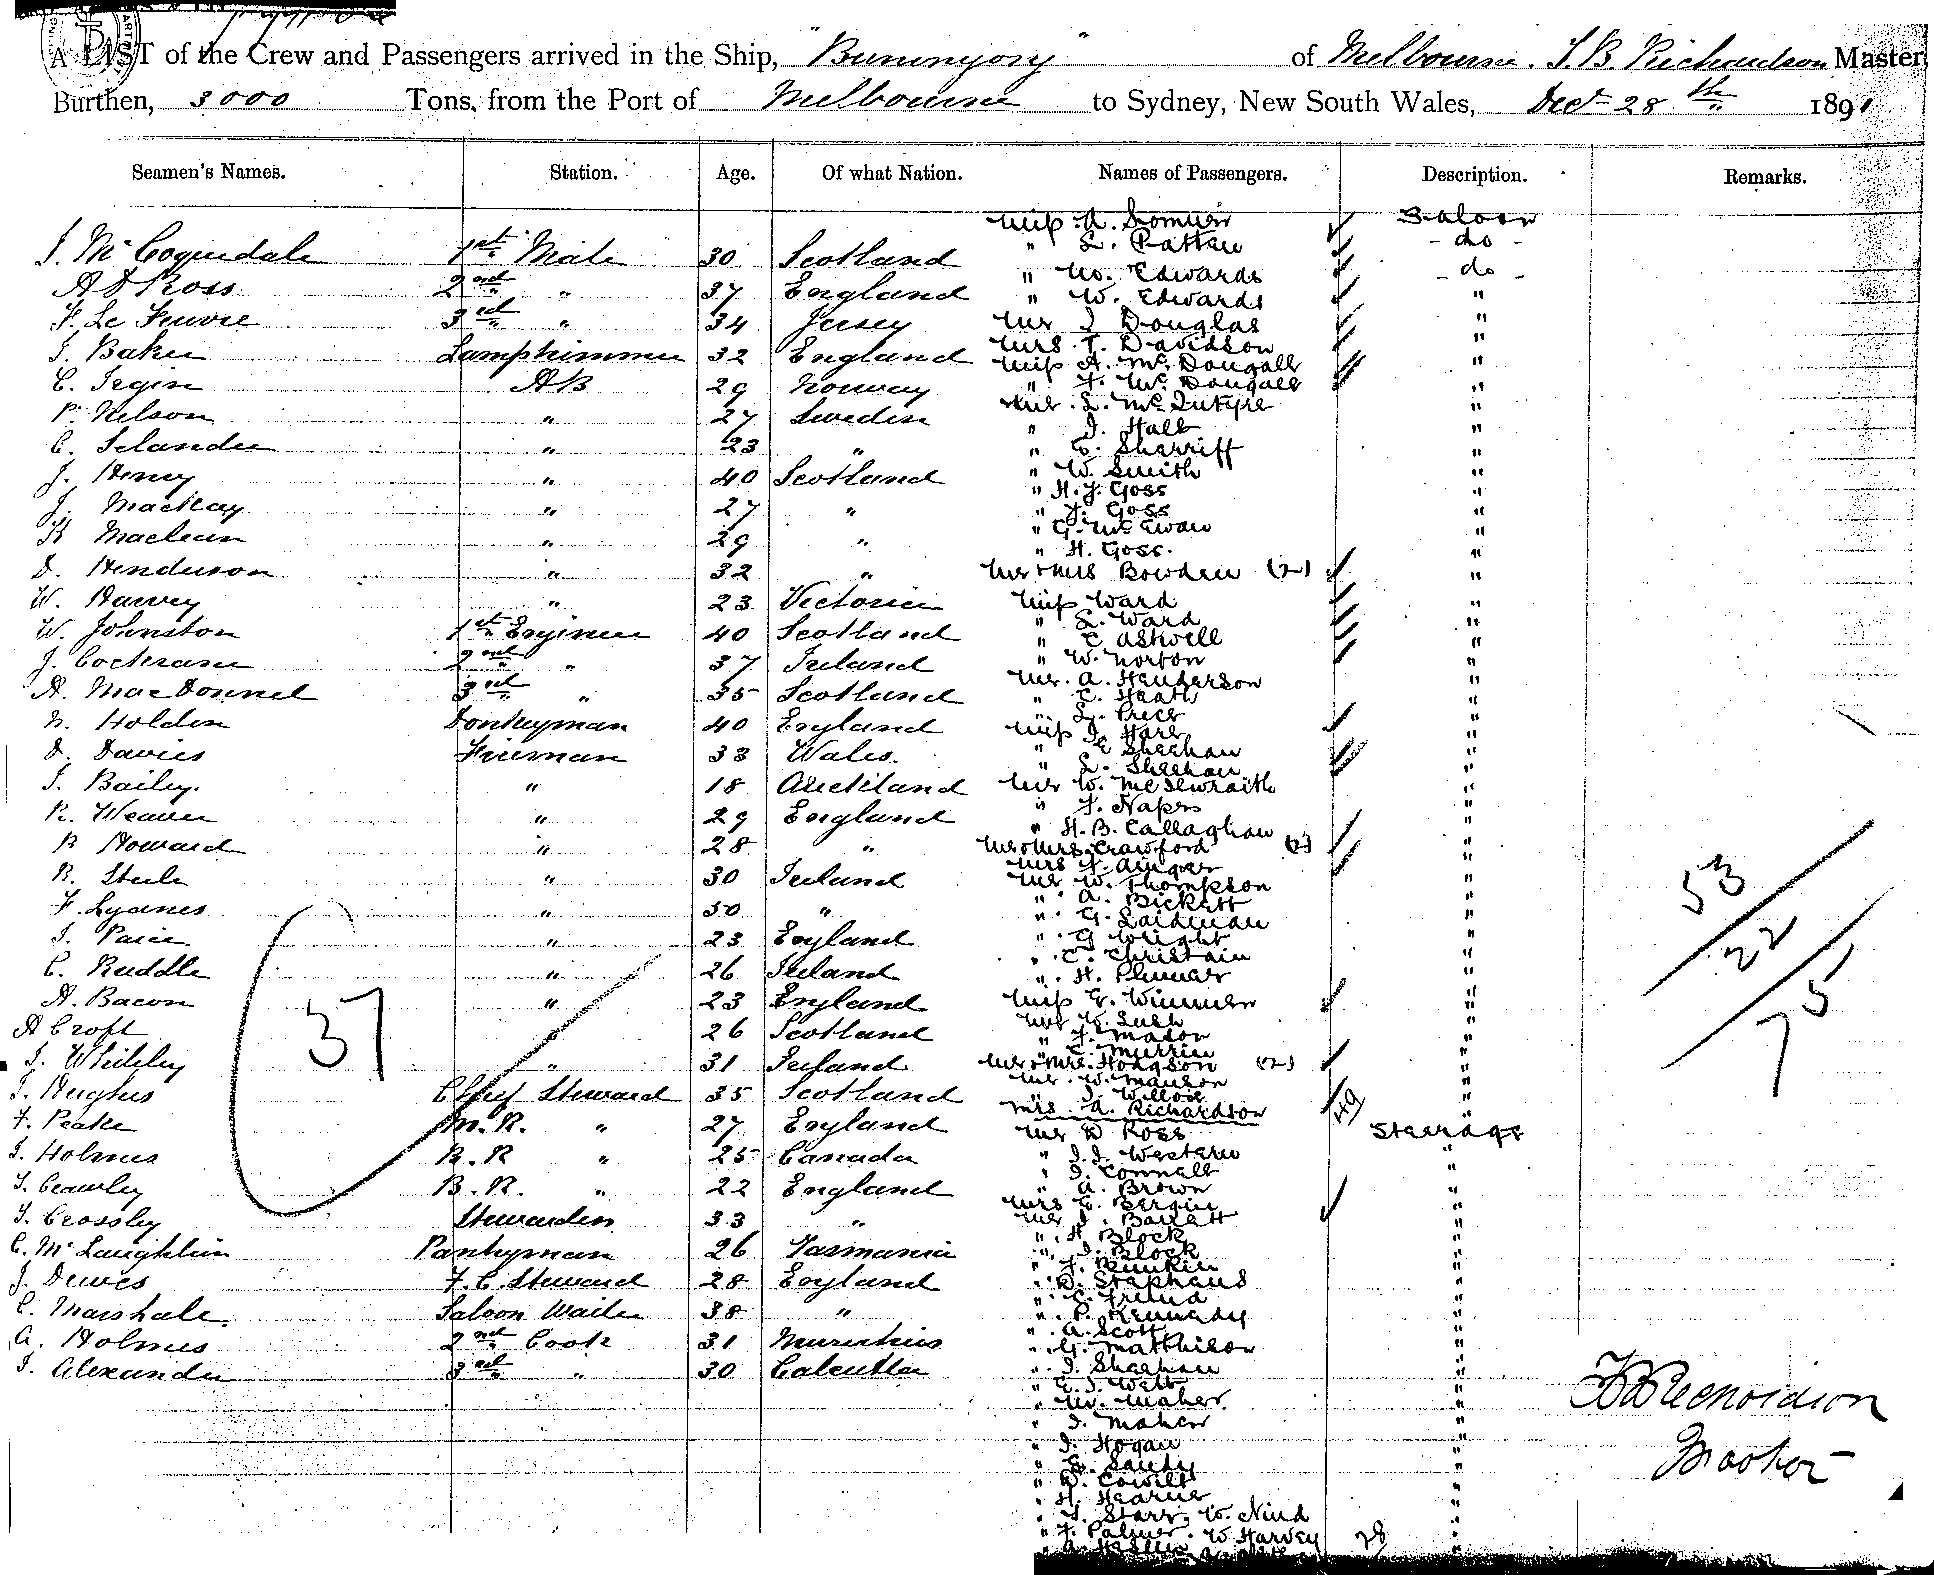 A LIST of the Crew and Passengers arrived in the Ship, "Buninyong" of Melbourne. T.B. Richardson Master
Burthen, 3000 Tons, from the Port of Melbourne to Sydney, New South Wales, Dect 28th 1891
Seamen's Names. Station. Age. Of what Nation. Names of Passengers. Description. Remarks.
J. Mc Coquedale 1st Mate 30 Scotland
A D Ross 2nd " 37 England
F. Le Feuvre 3rd " 34 Jersey
J. Baker Lamptrimmer 32 England
C. AB 29 Norway
P. Nelson " 27 Sweden
C. Selander " 23 "
J. Henry " 40 Scotland
J. Mackay " 27 "
K Maclean " 29 "
D. Henderson " 32 "
W. Harvey " 23 Victoria
W. Johnston 1st Engineer 40 Scotland
J. Cochrane 2nd " 37 Ireland
A. MacDonnel 3rd " 35 Scotland
N. Holden Donkeyman 40 England
D. Davies Fireman 33 Wales.
J. Bailey. " 18 Auckland
R. Weaver " 29 England
B Howard " 28 "
R. Steele " 30 Ireland
F. Lyanes " 30 "
J. Paice " 23 England
C. Ruddle " 26 Ireland
A. Bacon " 23 England
A Croft 26 Scotland
J. Whiteley " 31 Ireland
J. Hughes Chief Steward 35 Scotland
F. Peake M.R. " 27 England
J. Holmes R.R " 25 Canada
J. Crawley B.R. " 22 England
J. Crossley Stewardess 33 "
C. McLaughlin Pantryman 26 Tasmania
J. Dewes F.C. Steward 28 England
C. Marshall. Saloon Waiter 38 "
A. Holmes 2nd Cook 31 Mauritius
J. Alexander 3rd " 30 Calcutta
37
Miss A. Saloon
" L. Rattan - do -
" M. Edwards - do -
" W. Edwards "
Mr J Douglas "
Mrs T. Davidson "
Miss A. McDougall
" F. McDougall "
Mr. L. McIntyre "
" J. Hall
" C. Sherriff "
" W. Smith "
" H. J. Goss "
" J. Goss "
" G. McEwan "
" H. Goss. "
Mr & Mrs Bowden (2) "
Miss Ward "
" L. Ward "
" E Askwell "
" W. Norton "
Mr. A. Henderson "
" C. Heath "
" L. Price "
Miss J. Hare "
" E Sheehan "
" L. Sheehan "
Mr W. McIlwraith "
" F. Napes "
" H. B. Callaghan "
Mr & Mrs Crawford (2) "
Mrs F. "
Mr W. Thompson "
" A. Bickett "
" G. Laidman "
" G Wright "
" C. Christain "
" H. Plummer "
Miss E. Wimmer "
Mr C. Lush "
" F. Mason "
" C. Murrin "
Mr & Mrs. Hodgson (2) "
Mr. W. Manson "
" J. Willox "
Mrs. A. Richardson 49
Mr D Ross Steerage
" J. J. Western "
" J. Connell "
" A. Brown "
Mrs C. Bergin "
Mr J. Barrett "
" H. Block "
" J. Block "
" J. Rankin "
" D. Stephens "
" C. Freund "
" P. Kennedy "
" A. Scott "
" G. Matthison "
" J. Sheehan "
" E. J. Webb "
" W. Maher. "
" J. Maher "
" J. Hogan "
" G. Sandy "
" D. Cowilt "
" H. Hearne "
" J. Starr, W. Nind "
" F. Palmer. W Harvey 28 "
53
22
75
T B Richardson
Master